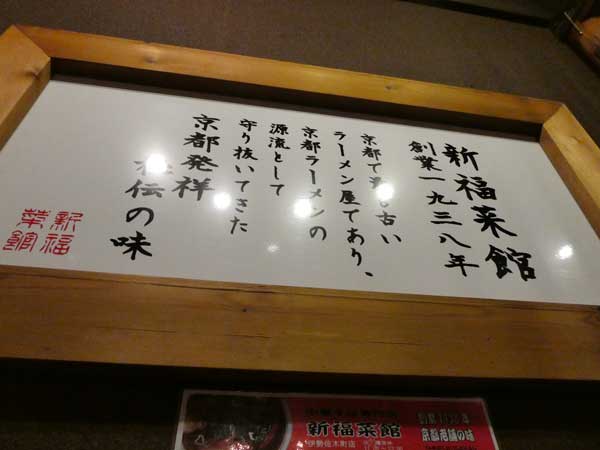 新福菜館
創業一九三八年
京都で 古い
ラーメン屋であり、
京都ラーメンの
源流として
守り抜いてきた
京都発祥
伝の味
新福
菜館
新福菜館
伊勢佐木町店
京都老舗の味